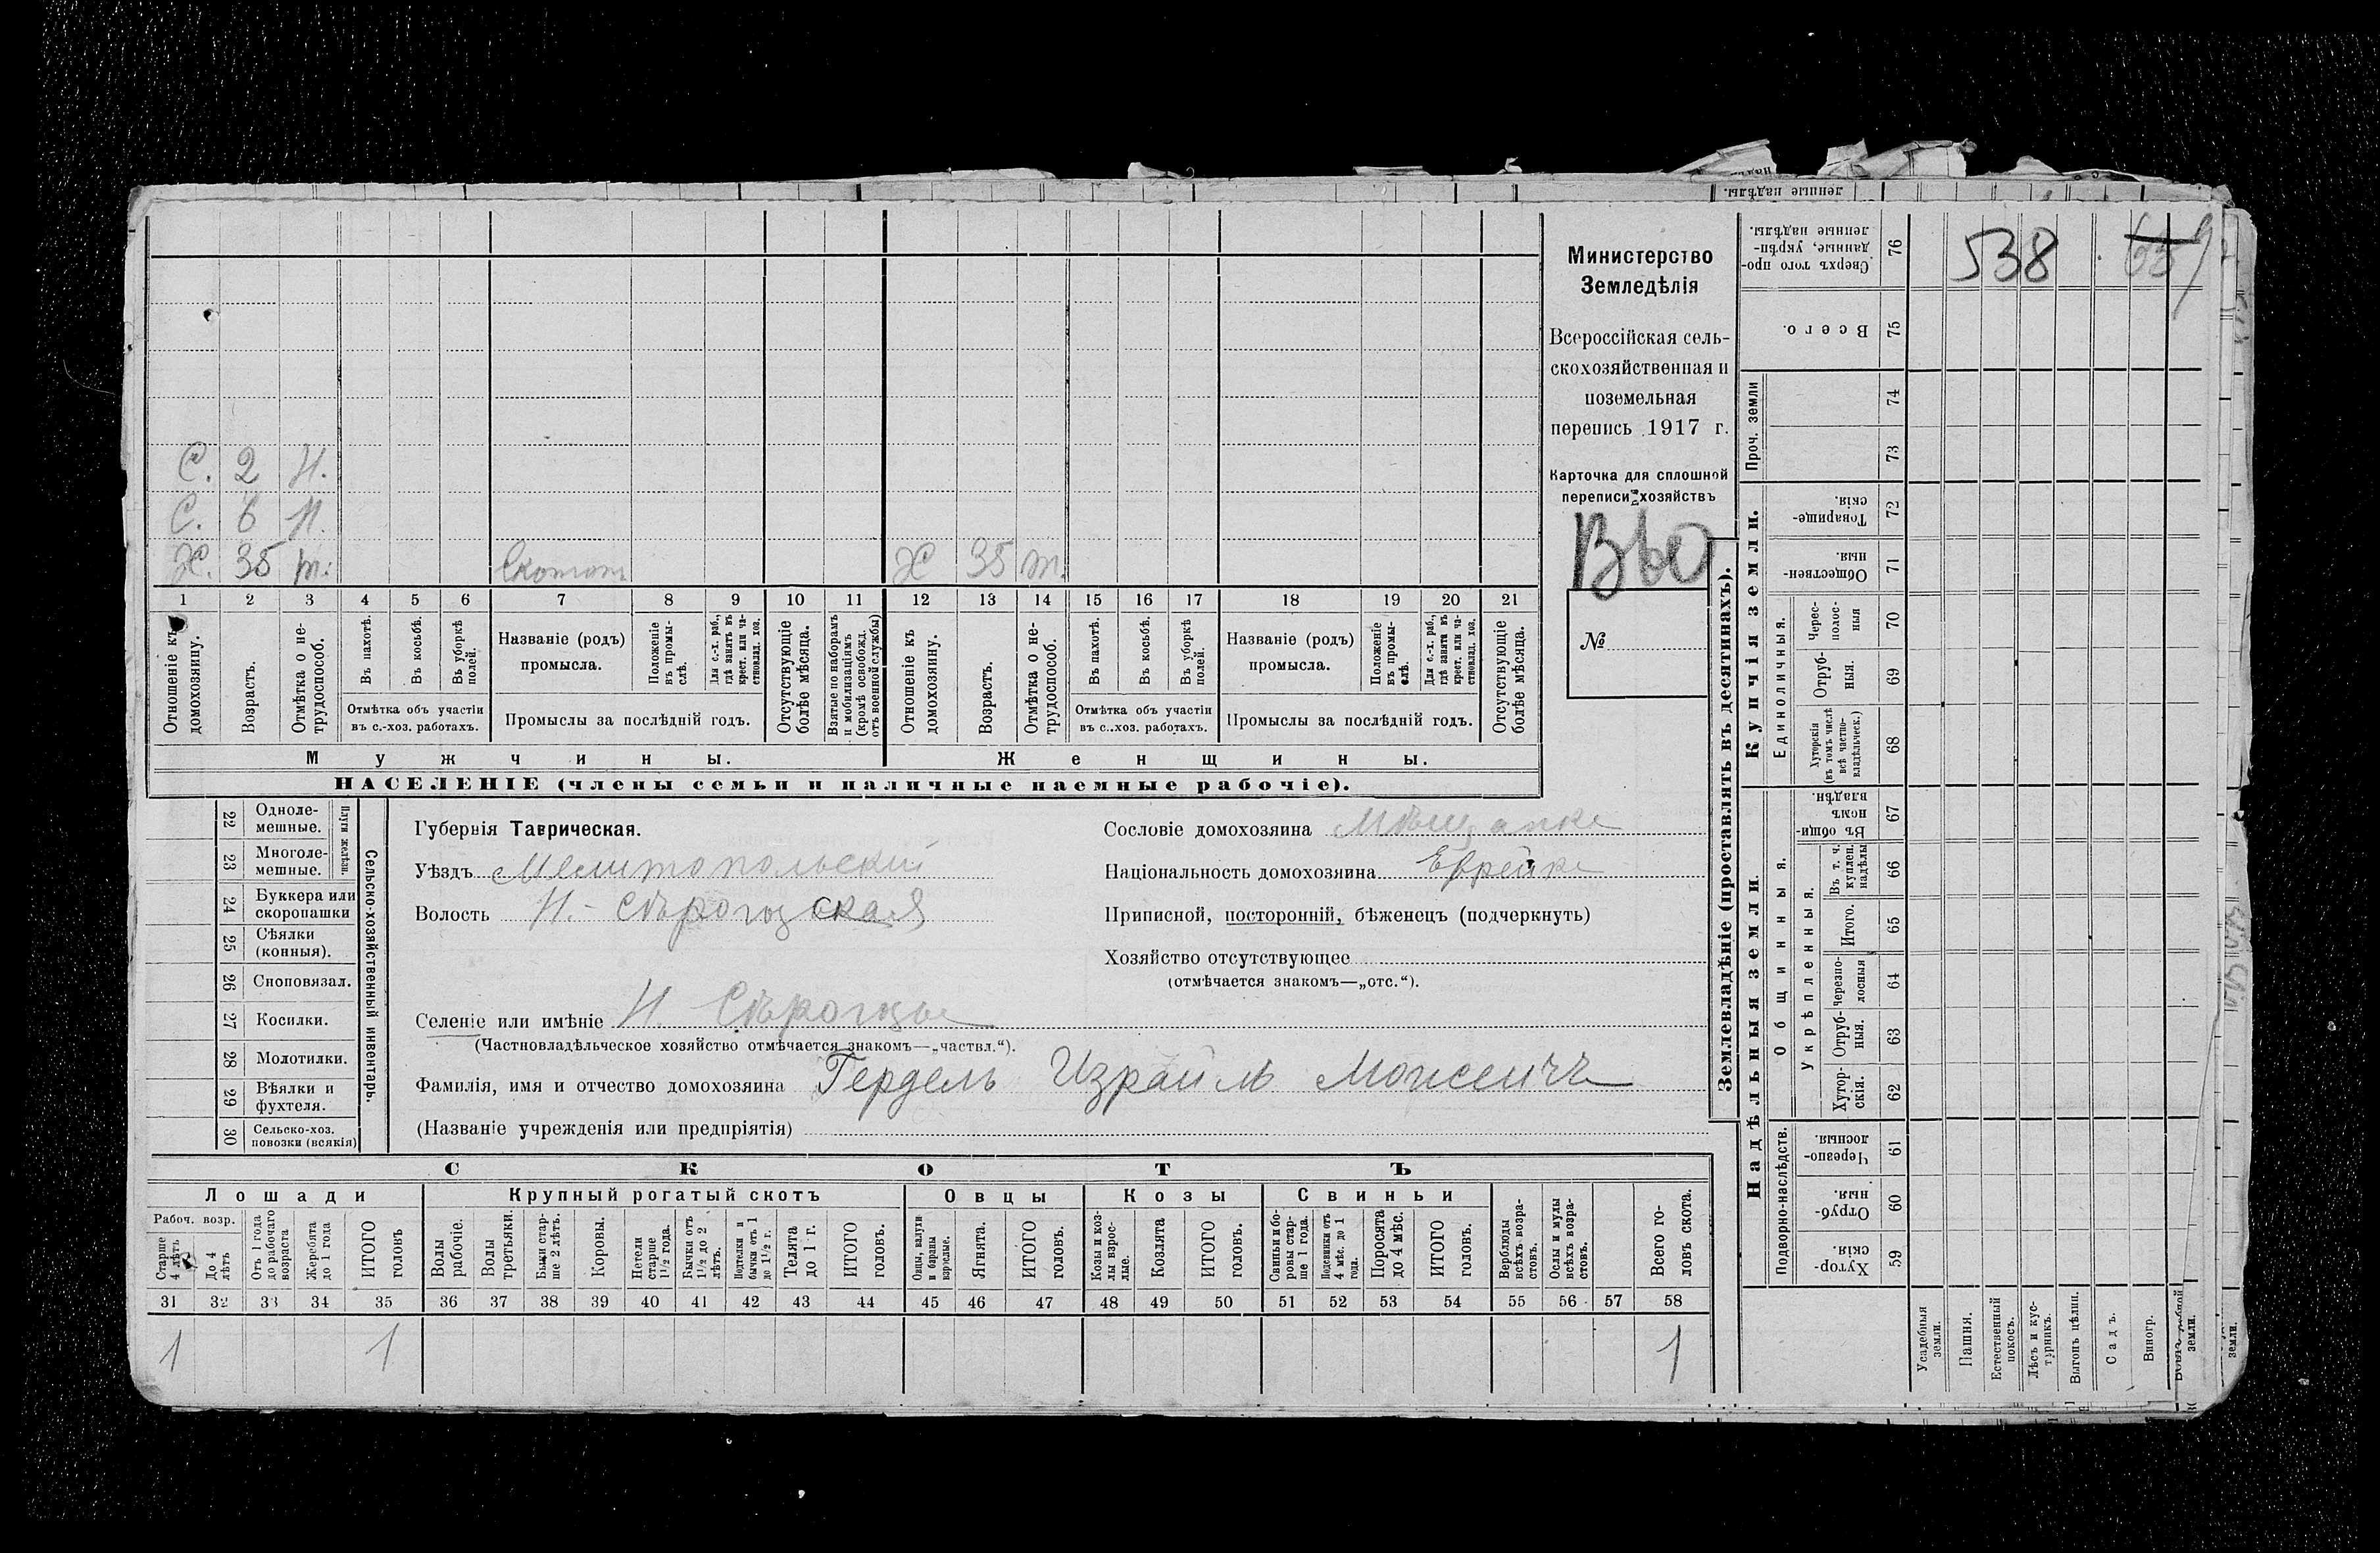 Министерство
Земледѣлія
Всероссійская сель-
скохозяйственная и
поземельная
перепись 1917 г.
Карточка для сплошной
переписи хозяйствъ
№
538
С. 2 Н.
С. 6 Н.
Х. 35 т. Х 35 т.
1 2 3 4 5 6 7 8 9 10 11 12 13 14 15 16 17 18 19 20 21
Отношеніе къ домохозяину.
Возрастъ.
Отмѣтка о не-трудоспособ.
Въ пахотѣ.
Въ косьбѣ.
Въ уборкѣ полей.
Отмѣтка объ участіи
въ с.-хоз. работахъ.
Названіе (родъ)
промысла.
Положеніе въ промы-слѣ.
Для с.-х. раб., гдѣ занятъ въ крест. или ча-стновлад. хоз.
Промыслы за послѣдній годъ.
Отсутствующіе болѣе мѣсяца.
Взятые по наборамъ и мобилизаціямъ (кромѣ освобожд. отъ военной службы)
Отношеніе къ домохозяину.
Возрастъ.
Отмѣтка о не-трудоспособ.
Въ пахотѣ.
Въ косьбѣ.
Въ уборкѣ полей.
Отмѣтка объ участіи
въ с..хоз. работахъ.
Названіе (родъ)
промысла.
Положеніе въ промы-слѣ.
Для с.-х. раб., гдѣ занята въ крест. или ча-стновлад. хоз.
Промыслы за послѣдній годъ.
Отсутствующіе болѣе мѣсяца.
Мужчины. Женщины.
НАСЕЛЕНІЕ (члены семьи и наличные наемные рабочіе).
22 Одноле-мешные.
23 Многоле-мешные.
Плуги желѣзн.
24 Буккера или скоропашки
25 Сѣялки (конныя).
26 Сноповязал.
27 Косилки.
28 Молотилки.
29 Вѣялки и фухтеля.
30 Сельско-хоз. повозки (всякія)
Сельско-хозяйственный инвентарь.
Губернія Таврическая.
Уѣздъ Мелитопольскій
Волость Н.-Сѣрогозская
Селеніе или имѣніе Н. Сѣрогозы
(Частновладѣльческое хозяйство отмѣчается знакомъ—„частвл.“).
Фамилія, имя и отчество домохозяина Гердель Израиль Моисеичъ
(Названіе учрежденія или предпріятія)
Сословіе домохозяина
Національность домохозяина
Приписной, посторонній, бѣженецъ (подчеркнуть)
Хозяйство отсутствующее
(отмѣчается знакомъ—„отс.“).
СКОТЪ
Лошади Крупный рогатый скотъ Овцы Козы Свиньи
Рабоч. возр.
Старше 4 лѣтъ
До 4 лѣтъ
Отъ 1 года до рабочаго возраста
Жеребята до 1 года
ИТОГО головъ
Волы рабочіе.
Волы третьяки.
Быки стар-ше 2 лѣтъ.
Коровы.
Нетели старше 1½ года.
Бычки отъ 1½ до 2 лѣтъ.
Подтелки и бычки отъ 1 до 1½ г.
Телята до 1 г.
ИТОГО головъ.
Овцы, валухи и бараны взрослые.
Ягнята.
ИТОГО головъ.
Козы и коз-лы взрос-лые.
Козлята
ИТОГО головъ.
Свиньи и бо-ровы стар-ше 1 года.
Подсвинки отъ 4 мѣс. до 1 года.
Поросята до 4 мѣс.
ИТОГО головъ.
Верблюды всѣхъ возра-стовъ.
Ослы и мулы всѣхъ возра-стовъ.
Всего го-ловъ скота.
31 32 33 34 35 36 37 38 39 40 41 42 43 44 45 46 47 48 49 50 51 52 53 54 55 56 57 58
1 1 1
Землевладѣніе (проставлять въ десятинахъ).
Купчія земли.
Надѣльныя земли
Сверхъ того про-данные, укрѣп-ленные надѣлы. 76
Всего. 75
Проч. земли
74
73
Товарище-скія. 72
Обществен-ныя. 71
Единоличныя.
Черес-полос-ныя 70
Отруб-ныя. 69
Хуторскія (въ томъ числѣ всѣ частно-владѣльческ.) 68
Общинныя.
Въ общи-номъ владѣн. 67
Укрѣпленныя.
Въ т. ч. куплен. надѣлы 66
Итого. 65
Черезпо-лосныя 64
Отруб-ныя. 63
Хутор-скія. 62
Подворно-наслѣдств.
Черезпо-лосныя. 61
Отруб-ныя. 60
Хутор-скія. 59
Усадебныя земли.
Пашня.
Естественный покосъ.
Лѣсъ и кус-тарникъ.
Выгонъ цѣлин.
Садъ.
Виногр.
земли.
земли.